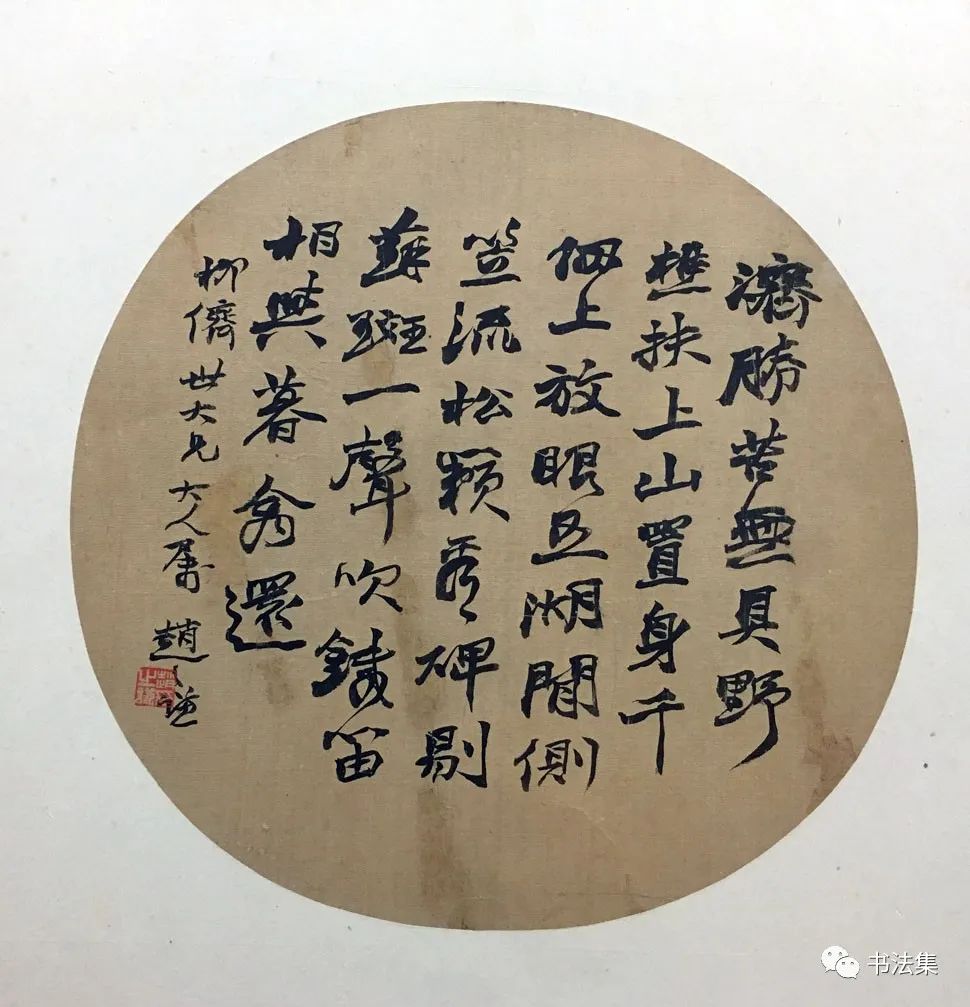 濟勝苦無具野
樵扶上山置身千
仞上放眼五湖閒側
笠流松籟看碑剔
蘚斑一聲吹鐵笛
相與暮禽還
柳儕世大兄大人屬 趙之謙
书法集